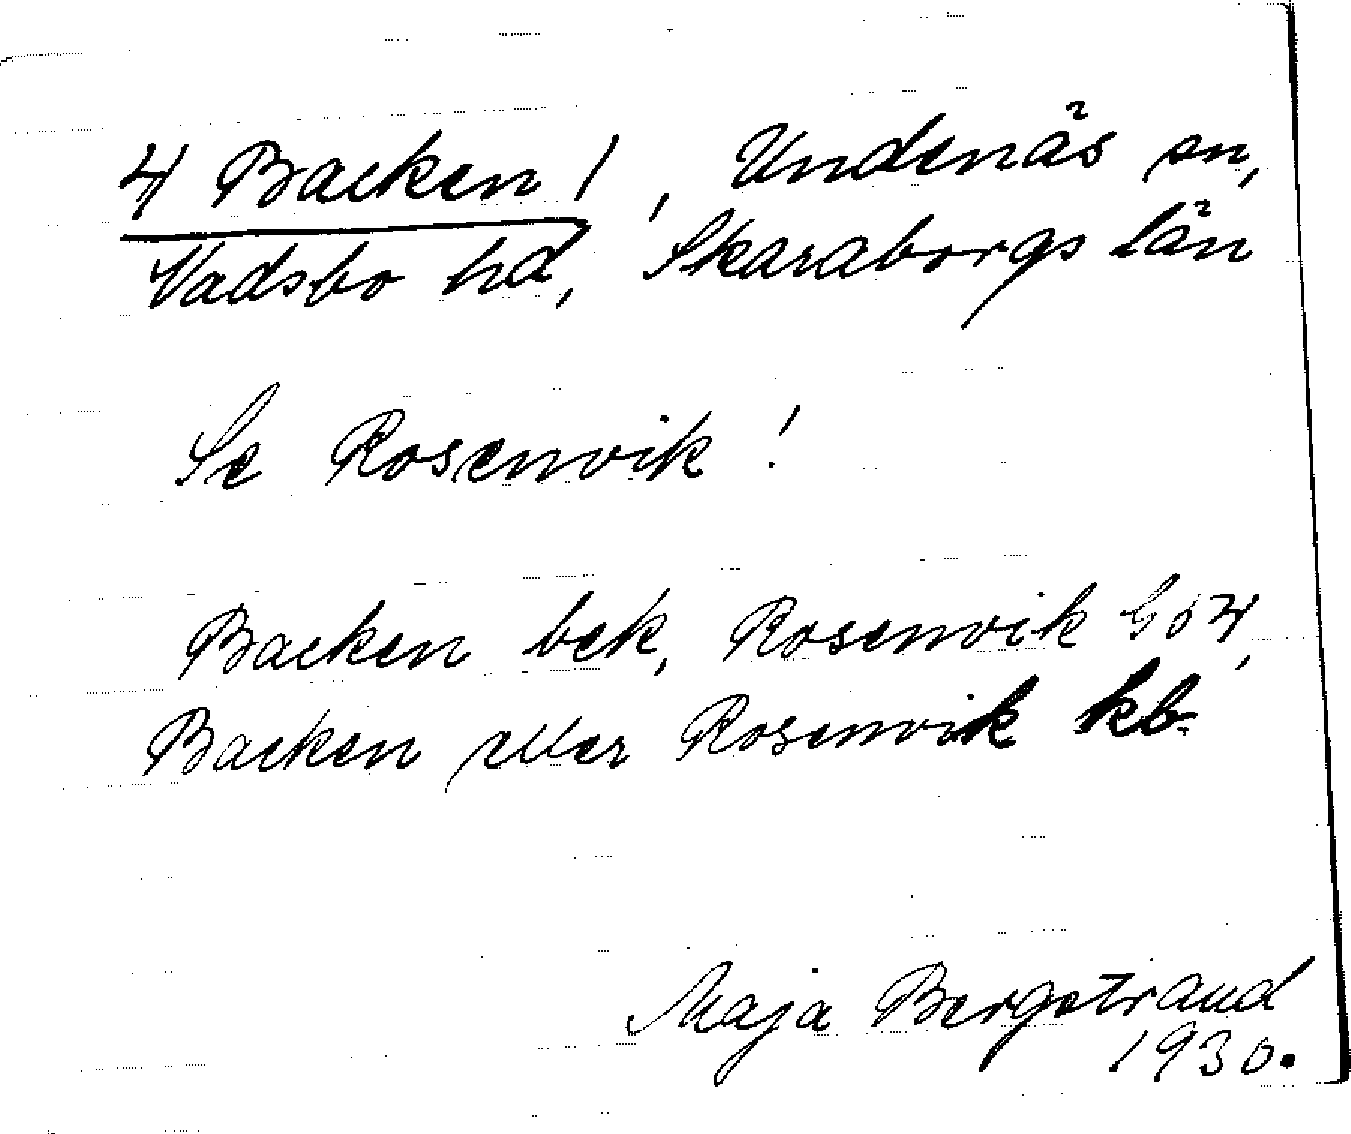 4 Backen 1, Undenäs sn,
Vadsbo hd, Skaraborgs län
Se Rosenvik!
Backen bek, Rosenvik
Backen eller Rosenvik kb.
Maja Bergstrand
1930.